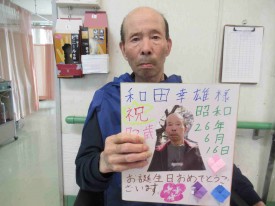 和田幸雄様
祝
77歳
昭和
26年
6月
16日
お誕生日おめでとう
ございます